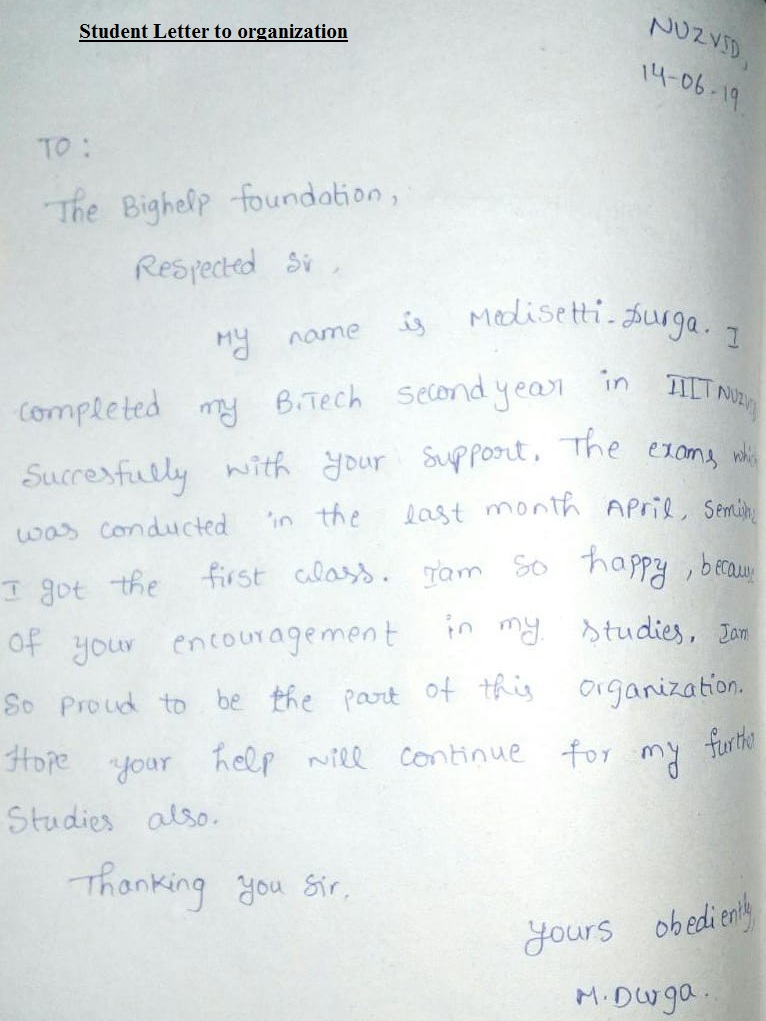 Student Letter to organization
NUZVID,
14-06-19
TO :
The Bighelp foundation,
Respected Sir,
My name is Medisetti-Durga. I
completed my B.Tech second year in IIIT
Succesfully with your support. The exams
was conducted in the last month April,
I got the first class. Iam so happy, because
of your encouragement in my studies. Iam
So proud to be the part of this organization.
Hope your help will continue for my further
Studies also.
Thanking you Sir,
yours obediently,
M.Durga.